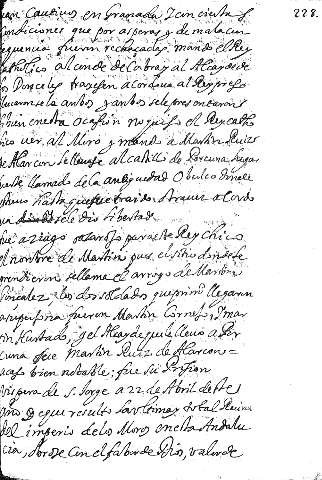 228.
Cautivos en Granada, I con ciertas
Condiciones que por asperas y de mala con
sequencia fueron rechaçadas, mandò el Rey
Catholico al conde de Cabra y al Alcayde de
los Donceles traxesen a Cordova al Rey preso
llevaronle ambos y antes se le presentaron
bien en esta ocasion no quiso el Rey Catho
lico ver al Moro y mandò a Martin Ruiz
de Alarcon se llevase al castillo de Porcuna lugar
fuerte llamado de la antiguedad Obulco donde
estuvo hasta que fue traido otra vez a Cordo
va donde se le diò libertad.
Fue aziago para este Rey Chico
el nombre de Martin pues el sitio donde se
prendieron se llama el arroyo de Martin
Gonzalez, los dos soldados que primero llegaron
a su persona fueron Martin Cornejo, y Mar
tin Hurtado, y el Alcayde que le llevò a Por
cuna fue Martin Ruiz de Alarcon =
acaso bien notable; fue su Prision
vispera de S. Jorge a 22 de Abril de este
año de que resultò la ultima y total Ruina
del imperio de los Moros en esta Andalu
cia, donde con el fabor de Dios, valor de